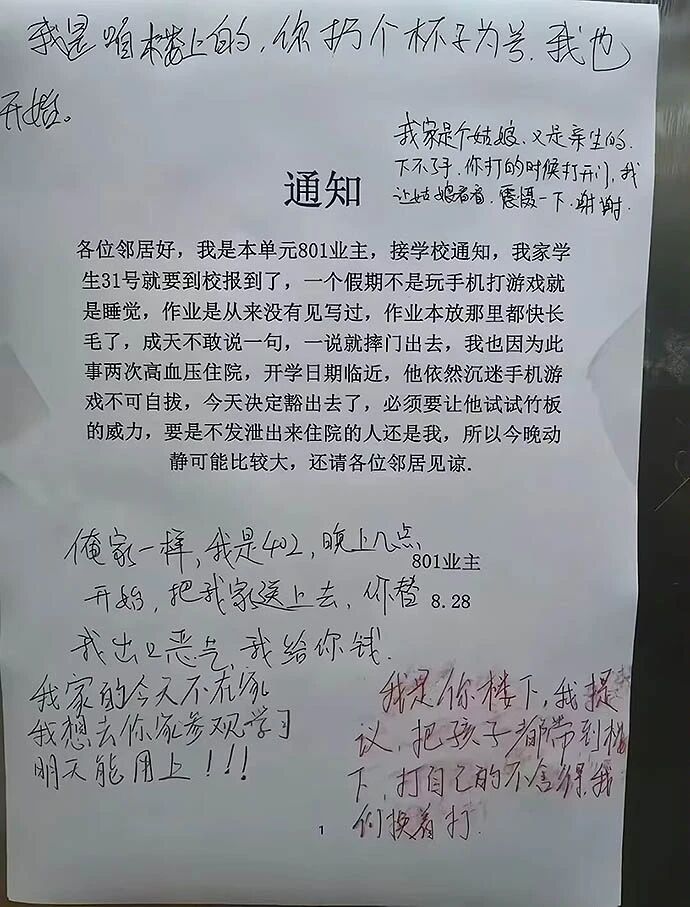 我是咱楼上的,你扔个杯子为号.我也
开始。
我家是个姑娘、又是亲生的.
下不了手.你打的时候打开门,我
让姑娘看看.震慑一下.谢谢.
通知
各位邻居好，我是本单元801业主，接学校通知，我家学
生31号就要到校报到了，一个假期不是玩手机打游戏就
是睡觉，作业是从来没有见写过，作业本放那里都快长
毛了，成天不敢说一句，一说就摔门出去，我也因为此
事两次高血压住院，开学日期临近，他依然沉迷手机游
戏不可自拔，今天决定豁出去了，必须要让他试试竹板
的威力，要是不发泄出来住院的人还是我，所以今晚动
静可能比较大，还请各位邻居见谅.
801业主
8.28
俺家一样,我是402,晚上几点
开始,把我家送上去,你替
我出口恶气,我给你钱.
我家的今天不在家
我想去你家参观学习
明天能用上!!!
我是你楼下,我提
议,把孩子都带到楼
下,打自己的不舍得.我
们换着打.
1